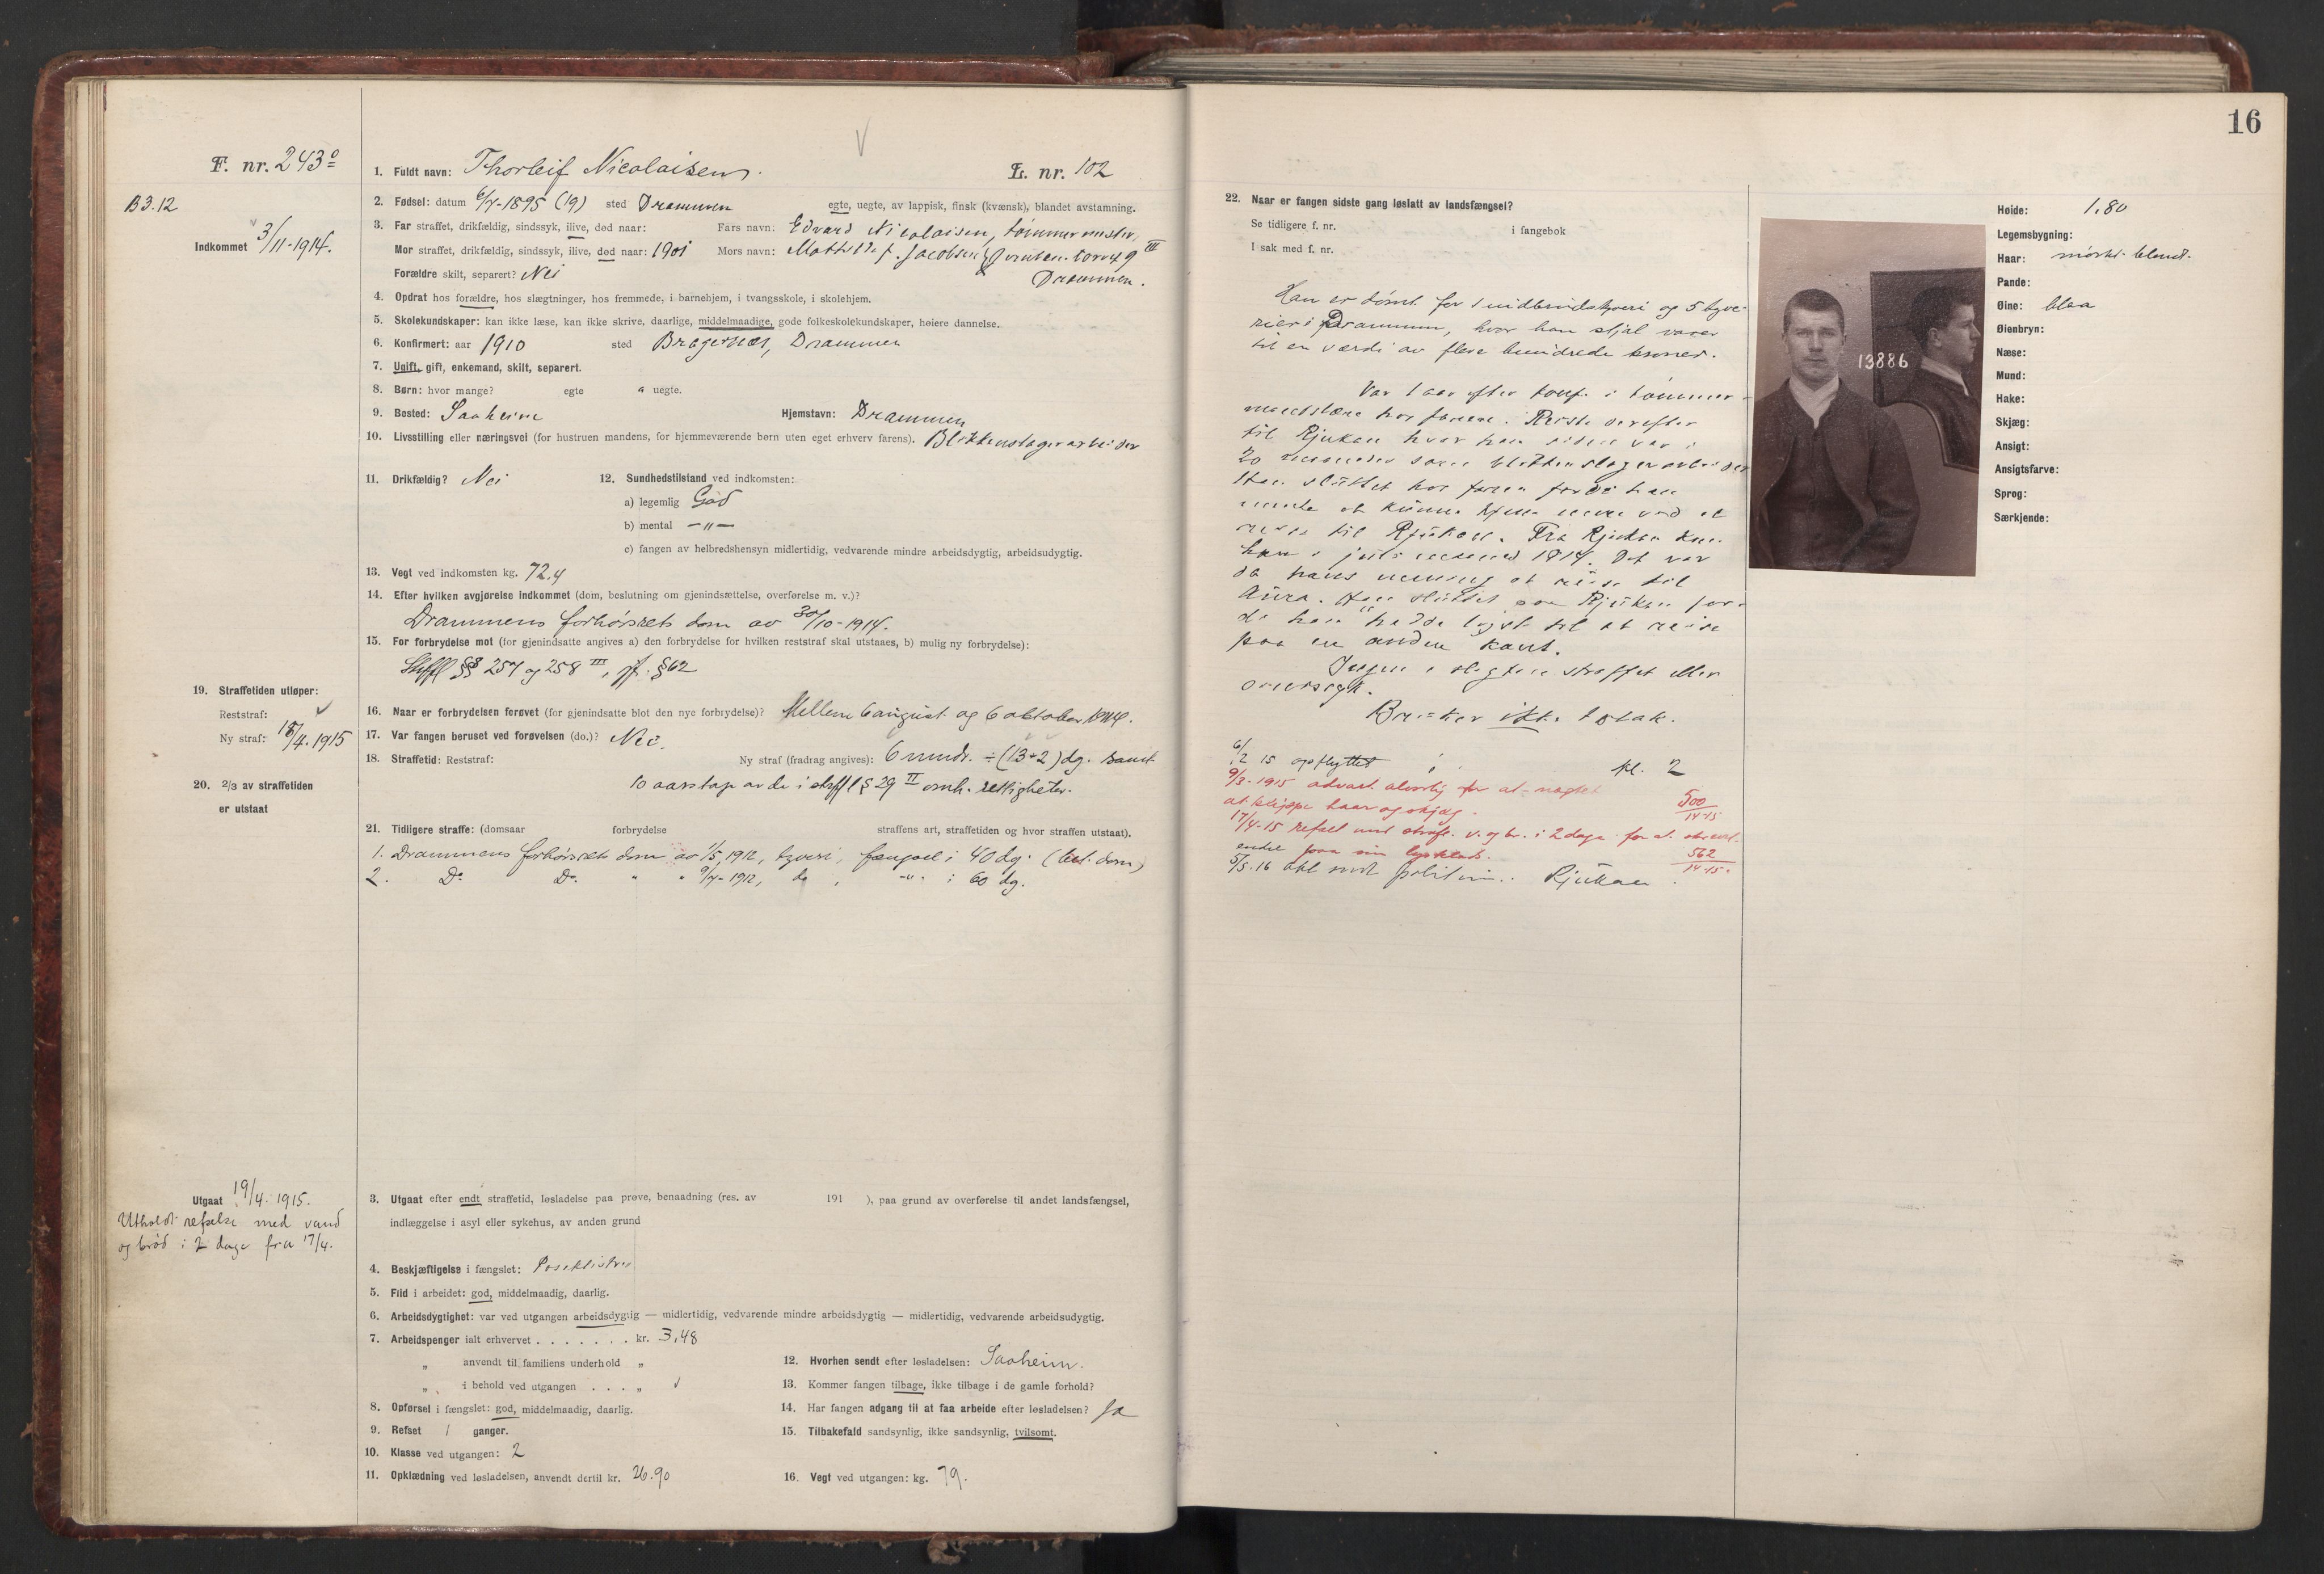 16
F. nr. 243º
B 3.12
Indkommet 3/11-1914.
1. Fuldt navn: Thorleif Nicolaisen.
L. nr. 102
2. Fødsel: datum 6/7-1895 (19) sted Drammen egte, uegte, av lappisk, finsk (kvænsk), blandet avstamning.
3. Far straffet, drikfældig, sindssyk, ilive, død naar: Fars navn: Edvard Nicolaisen, tømmermester,
Mor straffet, drikfældig, sindssyk, ilive, død naar: 1901 Mors navn: f. Jacobsen 9 III
Forældre skilt, separert? Nei Drammen.
4. Opdrat hos forældre, hos slægtninger, hos fremmede, i barnehjem, i tvangsskole, i skolehjem.
5. Skolekundskaper: kan ikke læse, kan ikke skrive, daarlige, middelmaadige, gode folkeskolekundskaper, høiere dannelse.
6. Konfirmert: aar 1910 sted Bragernæs, Drammen
7. Ugift, gift, enkemand, skilt, separert.
8. Børn: hvor mange? egte uegte.
9. Bosted: Saaheim Hjemstavn: Drammen
10. Livsstilling eller næringsvei (for hustruen mandens, for hjemmeværende børn uten eget erhverv farens). Blikkenslagerarbeider
11. Drikfældig? Nei
12. Sundhedstilstand ved indkomsten:
a) legemlig God
b) mental — " —
c) fangen av helbredshensyn midlertidig, vedvarende mindre arbeidsdygtig, arbeidsudygtig.
13. Vegt ved indkomsten kg. 72,4
14. Efter hvilken avgjørelse indkommet (dom, beslutning om gjenindsættelse, overførelse m. v.)?
Drammens forhørsrets dom av 30/10-1914.
15. For forbrydelse mot (for gjenindsatte angives a) den forbrydelse for hvilken reststraf skal utstaaes, b) mulig ny forbrydelse):
Strfl §§ 257 og 258 III, jf. § 62
16. Naar er forbrydelsen forøvet (for gjenindsatte blot den nye forbrydelse)? Mellem 6 august og 6 oktober 1914.
17. Var fangen beruset ved forøvelsen (do.)? Nei.
18. Straffetid: Reststraf: Ny straf (fradrag angives): 6 mndr. ÷ (13+2) dg. samt
10 aarstap av de i strfl § 29 II omh. rettigheter.
19. Straffetiden utløper:
Reststraf:
Ny straf: 18/4. 1915
20. 2/3 av straffetiden
er utstaat
21. Tidligere straffe: (domsaar forbrydelse straffens art, straffetiden og hvor straffen utstaat).
1. Drammens forhørsrets dom av 1/5, 1912, tyveri, fængsel i 40 dg. (bet. dom)
2. Do. Do. " " 9/7-1912, do, -"- i 60 dg.
Utgaat 19/4. 1915.
Utholdt refselse med vand
og brød i 2 dage fra 17/4.
3. Utgaat efter endt straffetid, løsladelse paa prøve, benaadning (res. av 191 ), paa grund av overførelse til andet landsfængsel,
indlæggelse i asyl eller sykehus, av anden grund
4. Beskjæftigelse i fængslet:
5. Flid i arbeidet: god, middelmaadig, daarlig.
6. Arbeidsdygtighet: var ved utgangen arbeidsdygtig — midlertidig, vedvarende mindre arbeidsdygtig — midlertidig, vedvarende arbeidsudygtig.
7. Arbeidspenger ialt erhvervet . . . . . . . kr. 3,48
" anvendt til familiens underhold "
" i behold ved utgangen . . . "
8. Opførsel i fængslet: god, middelmaadig, daarlig.
9. Refset 1 ganger.
10. Klasse ved utgangen: 2
11. Opklædning ved løsladelsen, anvendt dertil kr. 26.90
12. Hvorhen sendt efter løsladelsen: Saaheim.
13. Kommer fangen tilbage, ikke tilbage i de gamle forhold?
14. Har fangen adgang til at faa arbeide efter løsladelsen? Ja
15. Tilbakefald sandsynlig, ikke sandsynlig, tvilsomt.
16. Vegt ved utgangen: kg. 79.
22. Naar er fangen sidste gang løslatt av landsfængsel?
Se tidligere f. nr. i fangebok
I sak med f. nr.
Han er dømt for 1 indbrudstyveri og 5 tyve-
rier i Drammen, hvor han stjal varer
til en værdi av flere hundrede kroner.
Var 1 aar efter konf. i tømmer-
mandslære hos faren. Reiste derefter
til Rjukan hvor han siden var i
20 maaneder som blikkenslagerarbeider
Han sluttet hos faren fordi han
mente at kunne tjene mere ved at
reise til Rjukan. Fra Rjukan kom
han i juli maaned 1914. Det var
da hans mening at reise til
Aura. Han sluttet paa Rjukan for-
di han hadde lyst til at reise
paa en anden kant.
Ingen i slegten straffet eller
Bruker ikke tobak.
6/2 15 opflyttet i kl. 2
9/3-1915 advaret alvorlig for at negtet
at klippe haar og skjæg. 500/14-15
17/4-15 refset med straf. v. og br. i 2 dage for at
paa sin 562/14-15.
5/5.16 politim. Rjukan.
13886
Høide: 1,80
Legemsbygning:
Haar: mørke blond.
Pande:
Øine: blaa
Øienbryn:
Næse:
Mund:
Hake:
Skjæg:
Ansigt:
Ansigtsfarve:
Sprog:
Særkjende: